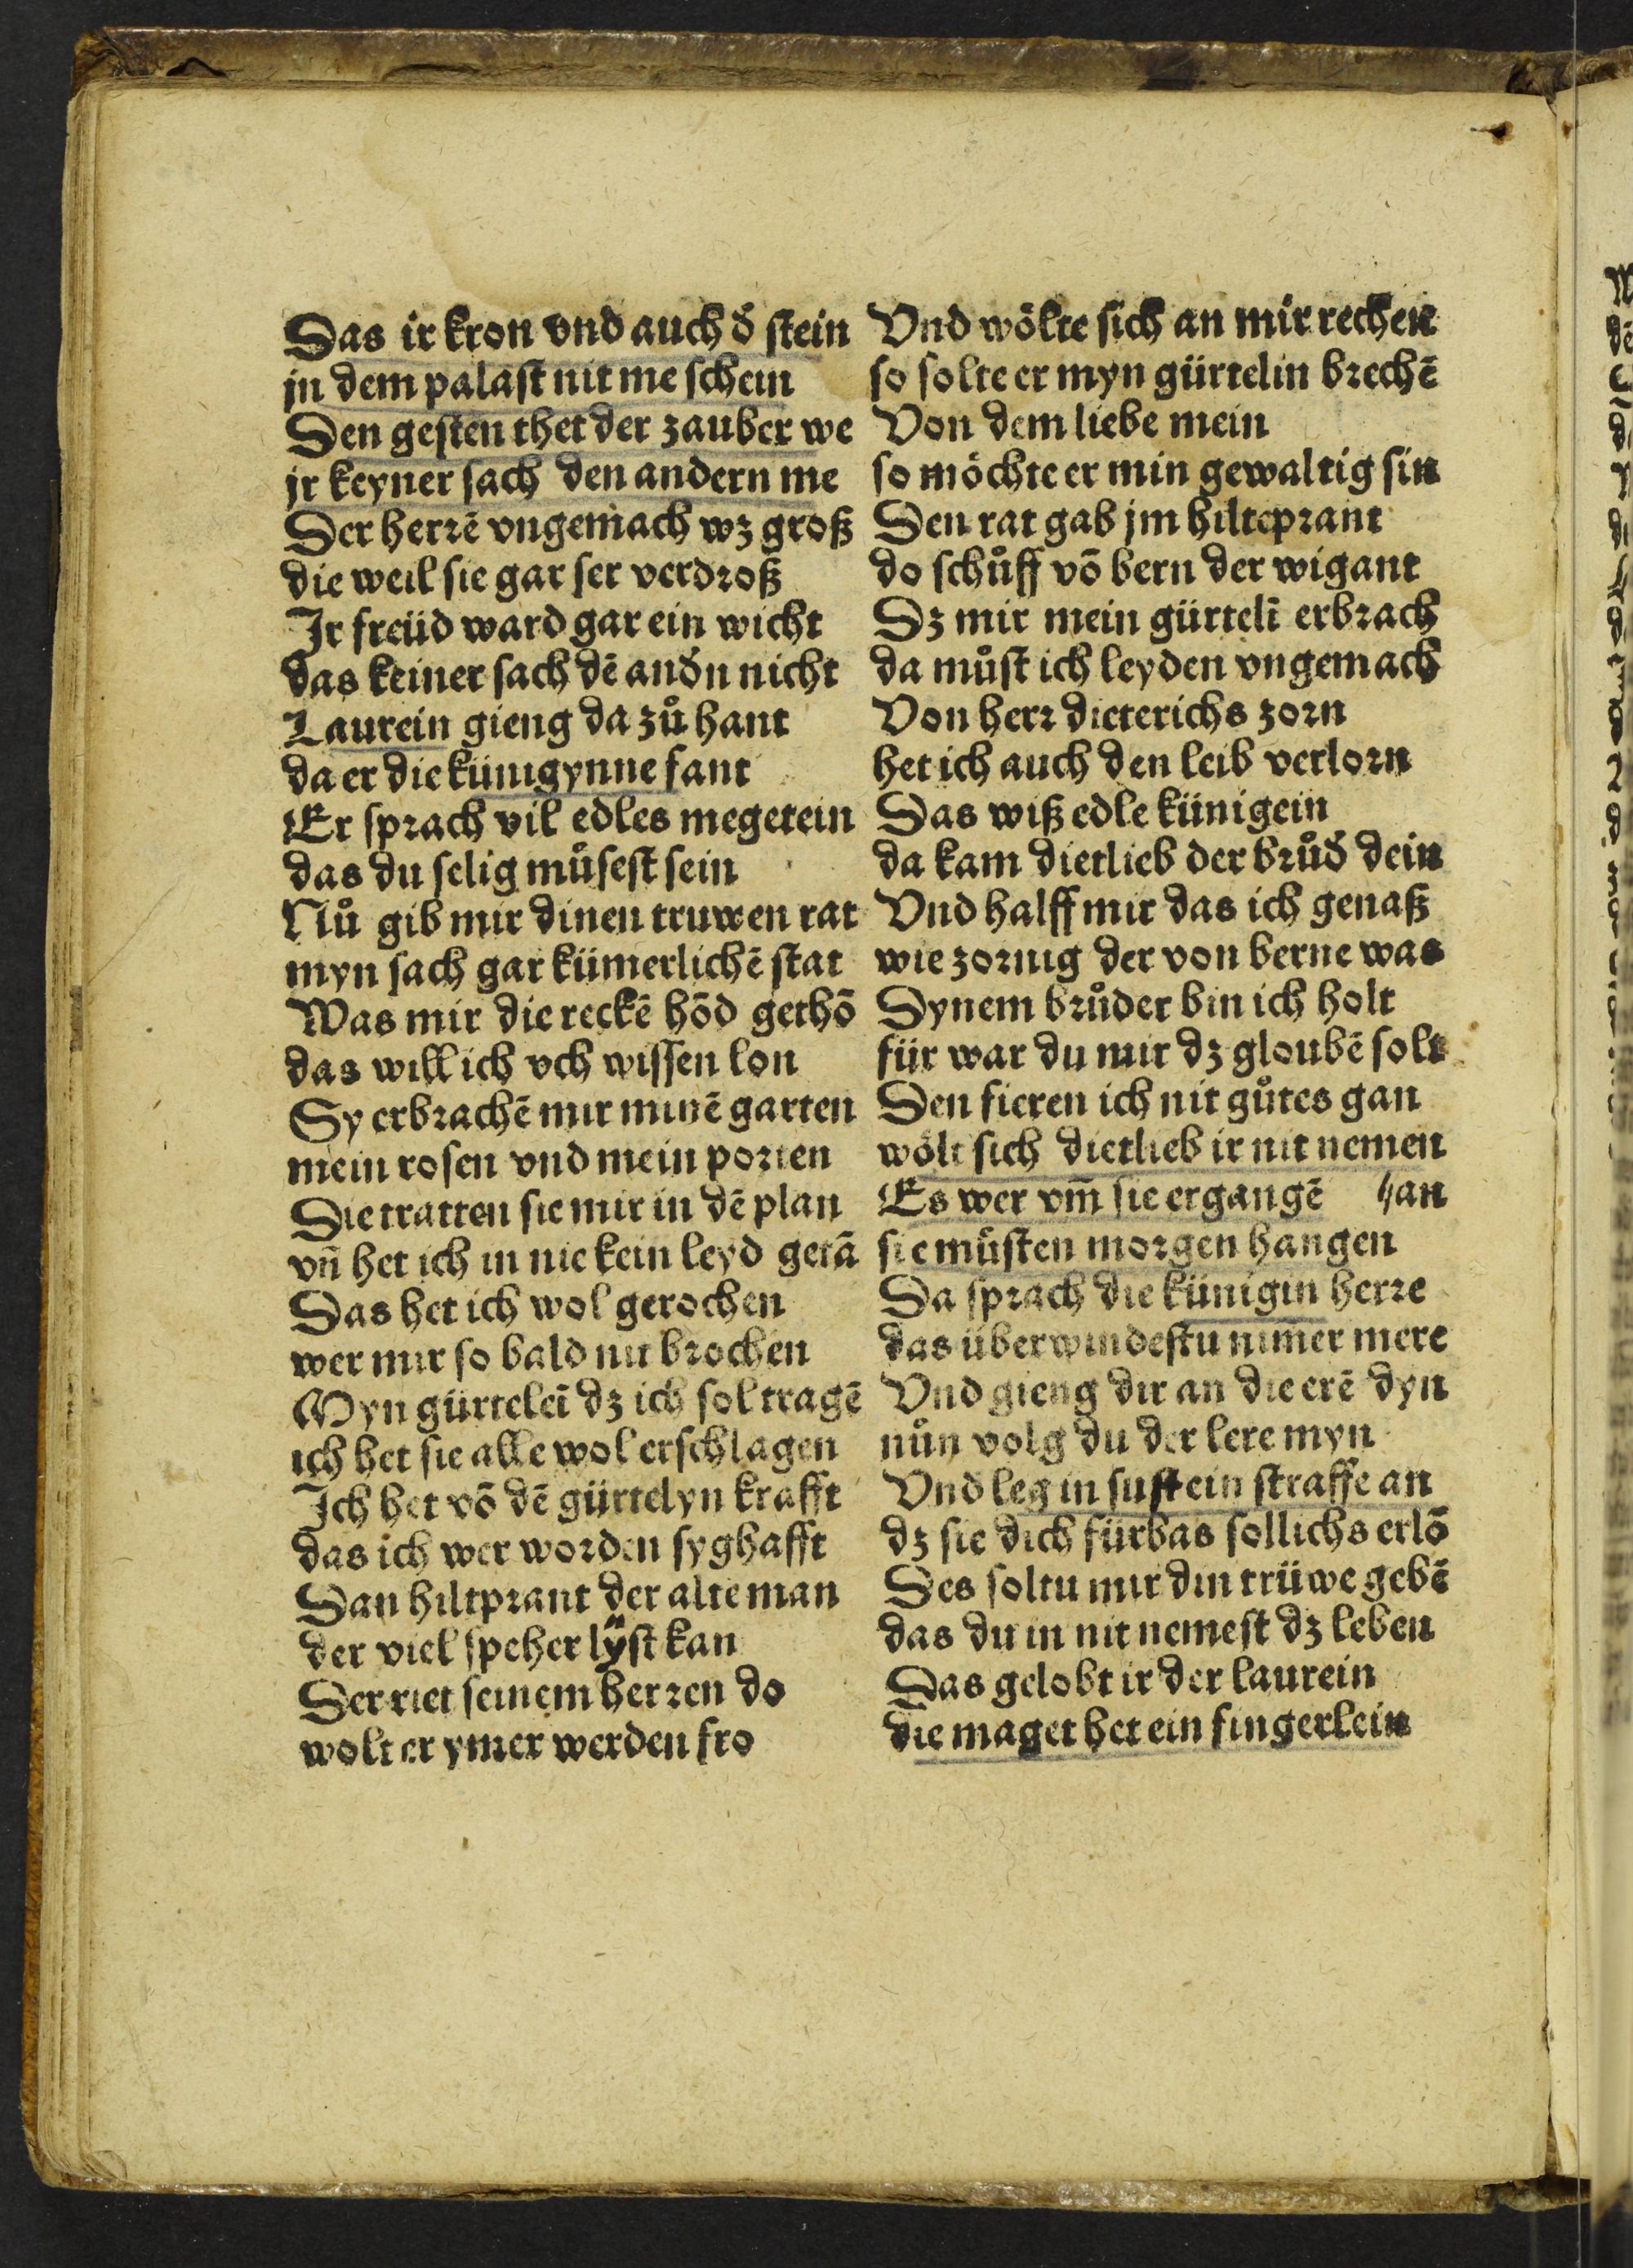 Das ir kron vnd auch dˀ stein
jn dem palast nit me schein
Den gesten thet der zauber we
jr keyner sach den andern me
Der herrē vngemach wz groß
die weil sie gar ser verdroß
Jr freüd ward gar ein wicht
das keiner sach dē andˀn nicht
Laurein gieng da zů hant
da er die künigynne fant
Er sprach vil edles megetein
das du selig můsest sein
Nů gib mir dinen truwen rat
myn sach gar kümerlichē stat
Was mir die reckē hōd gethō
das will ich vch wissen lon
Sy erbrachē mir minē garten
mein rosen vnd mein porten
Die tratten sie mir in dē plan
vñ het ich in nie kein leyd getā
Das het ich wol gerochen
wer mir so bald nit brochen
Myn gürteleī dz ich sol tragē
ich het sie alle wol erschlagen
Jch het vō dē gürtelyn krafft
das ich wer worden syghafft
Dan hiltprant der alte man
der viel speher lÿst kan
Der riet seinem herren do
wolt er ymer werden fro
Vnd wölte sich an mir rechen
so solte er myn gürtelin brechē
Von dem liebe mein
so möchte er min gewaltig sin
Den rat gab jm hilteprant
do schůff vō bern der wigant
Dz mir mein gürtelī erbrach
da můst ich leyden vngemach
Von herr dieterichs zorn
het ich auch den leib verlorn
Das wiß edle künigein
da kam dietlieb der brůdˀ dein
Vnd halff mir das ich genaß
wie zornig der von berne was
Dynem brůder bin ich holt
für war du mir dz gloubē solt
Den fieren ich nit gůtes gan
wölt sich dietlieb ir nit nemen
Es wer vm̄ sie ergangē han
sie müsten morgen hangen
Da sprach die künigin herre
das überwindestu nimer mere
Vnd gieng dir an die erē dyn
nůn volg du der lere myn
Vnd leg in sust ein straffe an
dz sie dich fürbas sollichs erlō
Des soltu mir din trüwe gebē
das du in nit nemest dz leben
Das gelobt ir der laurein
die maget het ein fingerlein